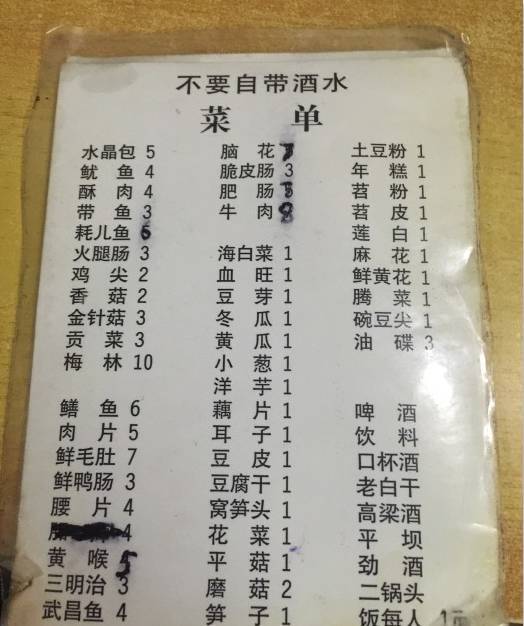 不要自带酒水
菜 单
水晶包 5
鱿 鱼 4
酥 肉 4
带 鱼 3
耗儿鱼 6
火腿肠 3
鸡 尖 2
香 菇 2
金针菇 3
贡 菜 3
梅 林 10
鳝 鱼 6
肉 片 5
鲜毛肚 7
鲜鸭肠 3
腰 片 4
4
黄 喉 5
三明治 3
武昌鱼 4
脑 花
脆皮肠 3
肥 肠
牛 肉
海白菜 1
血 旺 1
豆 芽 1
冬 瓜 1
黄 瓜 1
小 葱 1
洋 芋 1
藕 片 1
耳 子 1
豆 皮 1
豆腐干 1
窝笋头 1
花 菜 1
平 菇 1
磨 菇 2
笋 子 1
土豆粉 1
年 糕 1
苕 粉 1
苕 皮 1
莲 白 1
麻 花 1
鲜黄花 1
腾 菜 1
碗豆尖 1
油 碟 3
啤 酒
饮 料
口杯酒
老白干
高梁酒
平 坝
劲 酒
二锅头
饭每人 1元